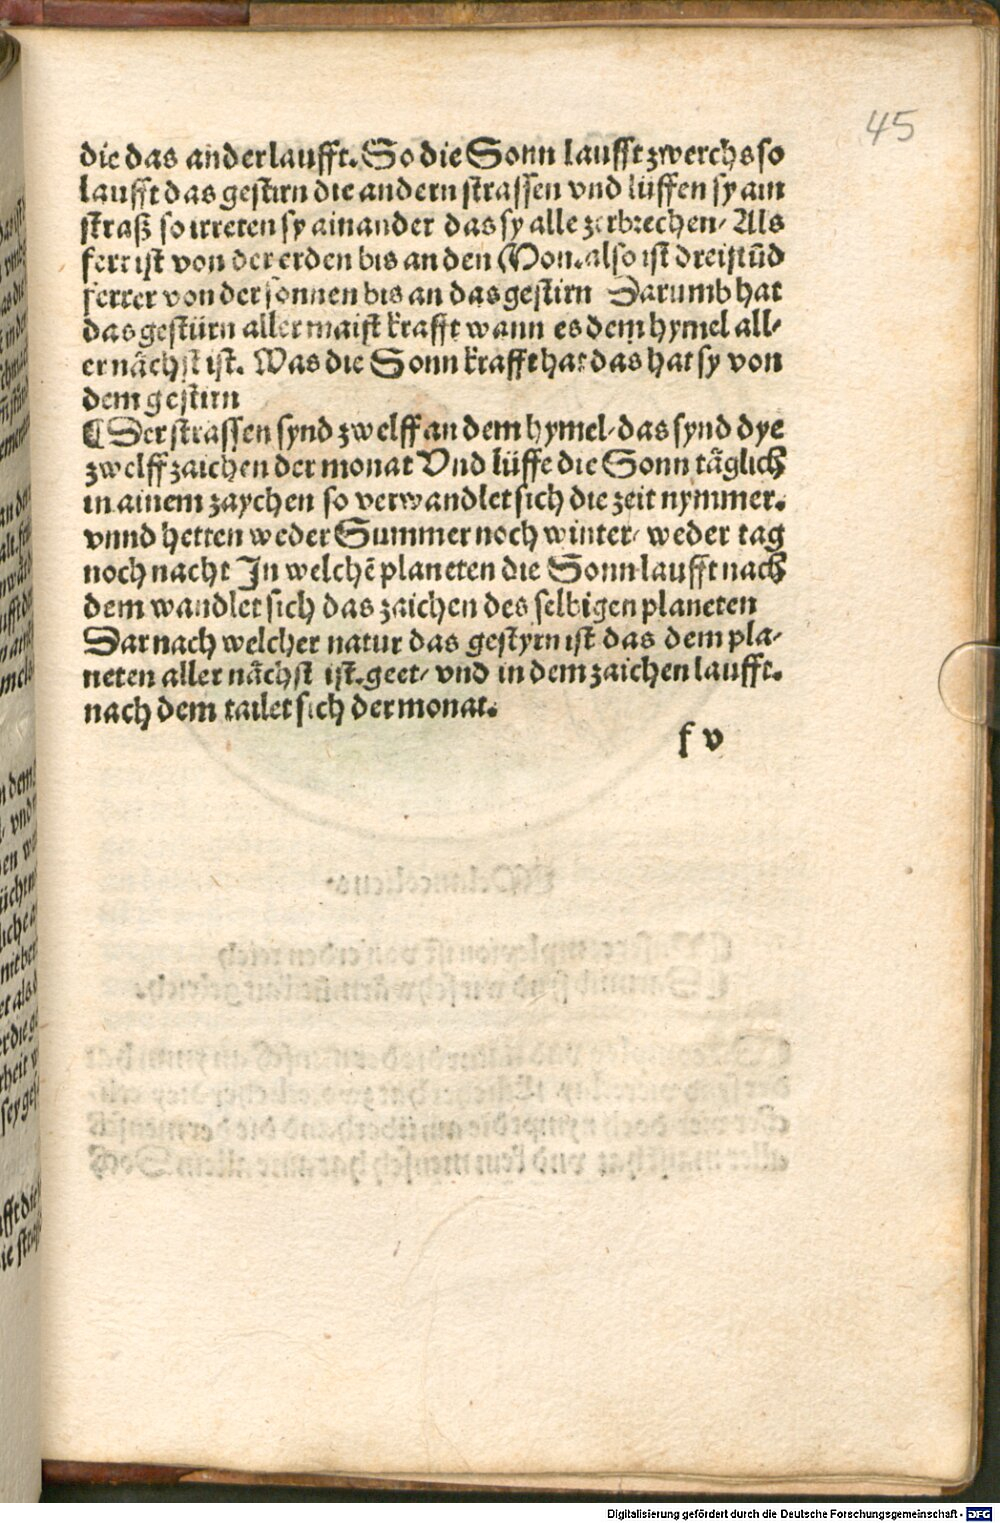 45
die das ander laufft. So die Sonn laufft zwerchs so
laufft das gestirn die andern strassen vnd lüffen sy ain
straß so irreten sy ainander das sy alle zerbrechen/ Als
ferr ist von der erden bis an den Mon. also ist dreistūd
ferrer von der sonnen bis an das gestirn Darumb hat
das gestürn aller maist krafft wann es dem hymel all/
er nächst ist. Was die Sonn krafft hat das hat sy von
dem gestirn
¶ Der strassen synd zwelff an dem hymel/ das synd dye
zwelff zaichen der monat Vnd lüffe die Sonn täglich
in ainem zaychen so verwandlet sich die zeit nymmer.
vnnd hetten weder Summer noch winter/ weder tag
noch nacht In welchē planeten die Sonn laufft nach
dem wandlet sich das zaichen des selbigen planeten
Darnach welcher natur das gestyrn ist das dem pla/
neten aller nächst ist. geet/ vnd in dem zaichen laufft.
nach dem tailet sich der monat.
f v
Digitalisierung gefördert durch die Deutsche Forschungsgemeinschaft - DFG